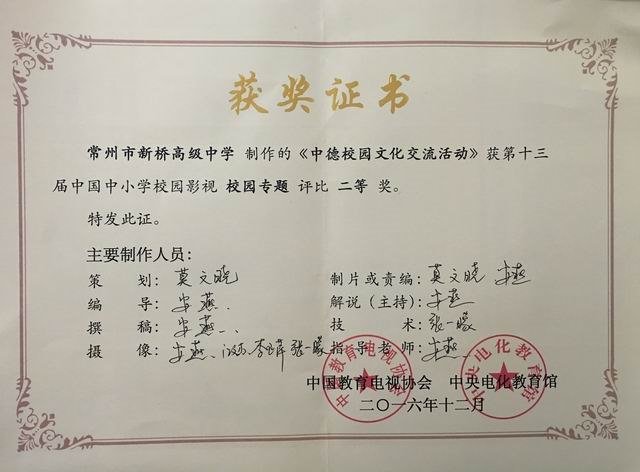 获奖证书
常州市新桥高级中学 制作的《中德校园文化交流活动》获第十三
届中国中小学校园影视 校园专题 评比 二等 奖。
特发此证。
主要制作人员:
策 划: 莫文晓 制片或责编: 莫文晓 安燕
编 导: 安燕 解说(主持): 安燕
撰 稿: 安燕 技 术: 张一曚
摄 像: 安燕、 张一曚 指导老师: 安燕
中国教育电视协会 中央电化教育馆
二〇一六年十二月
中国教育电视协会
中央电化教育馆